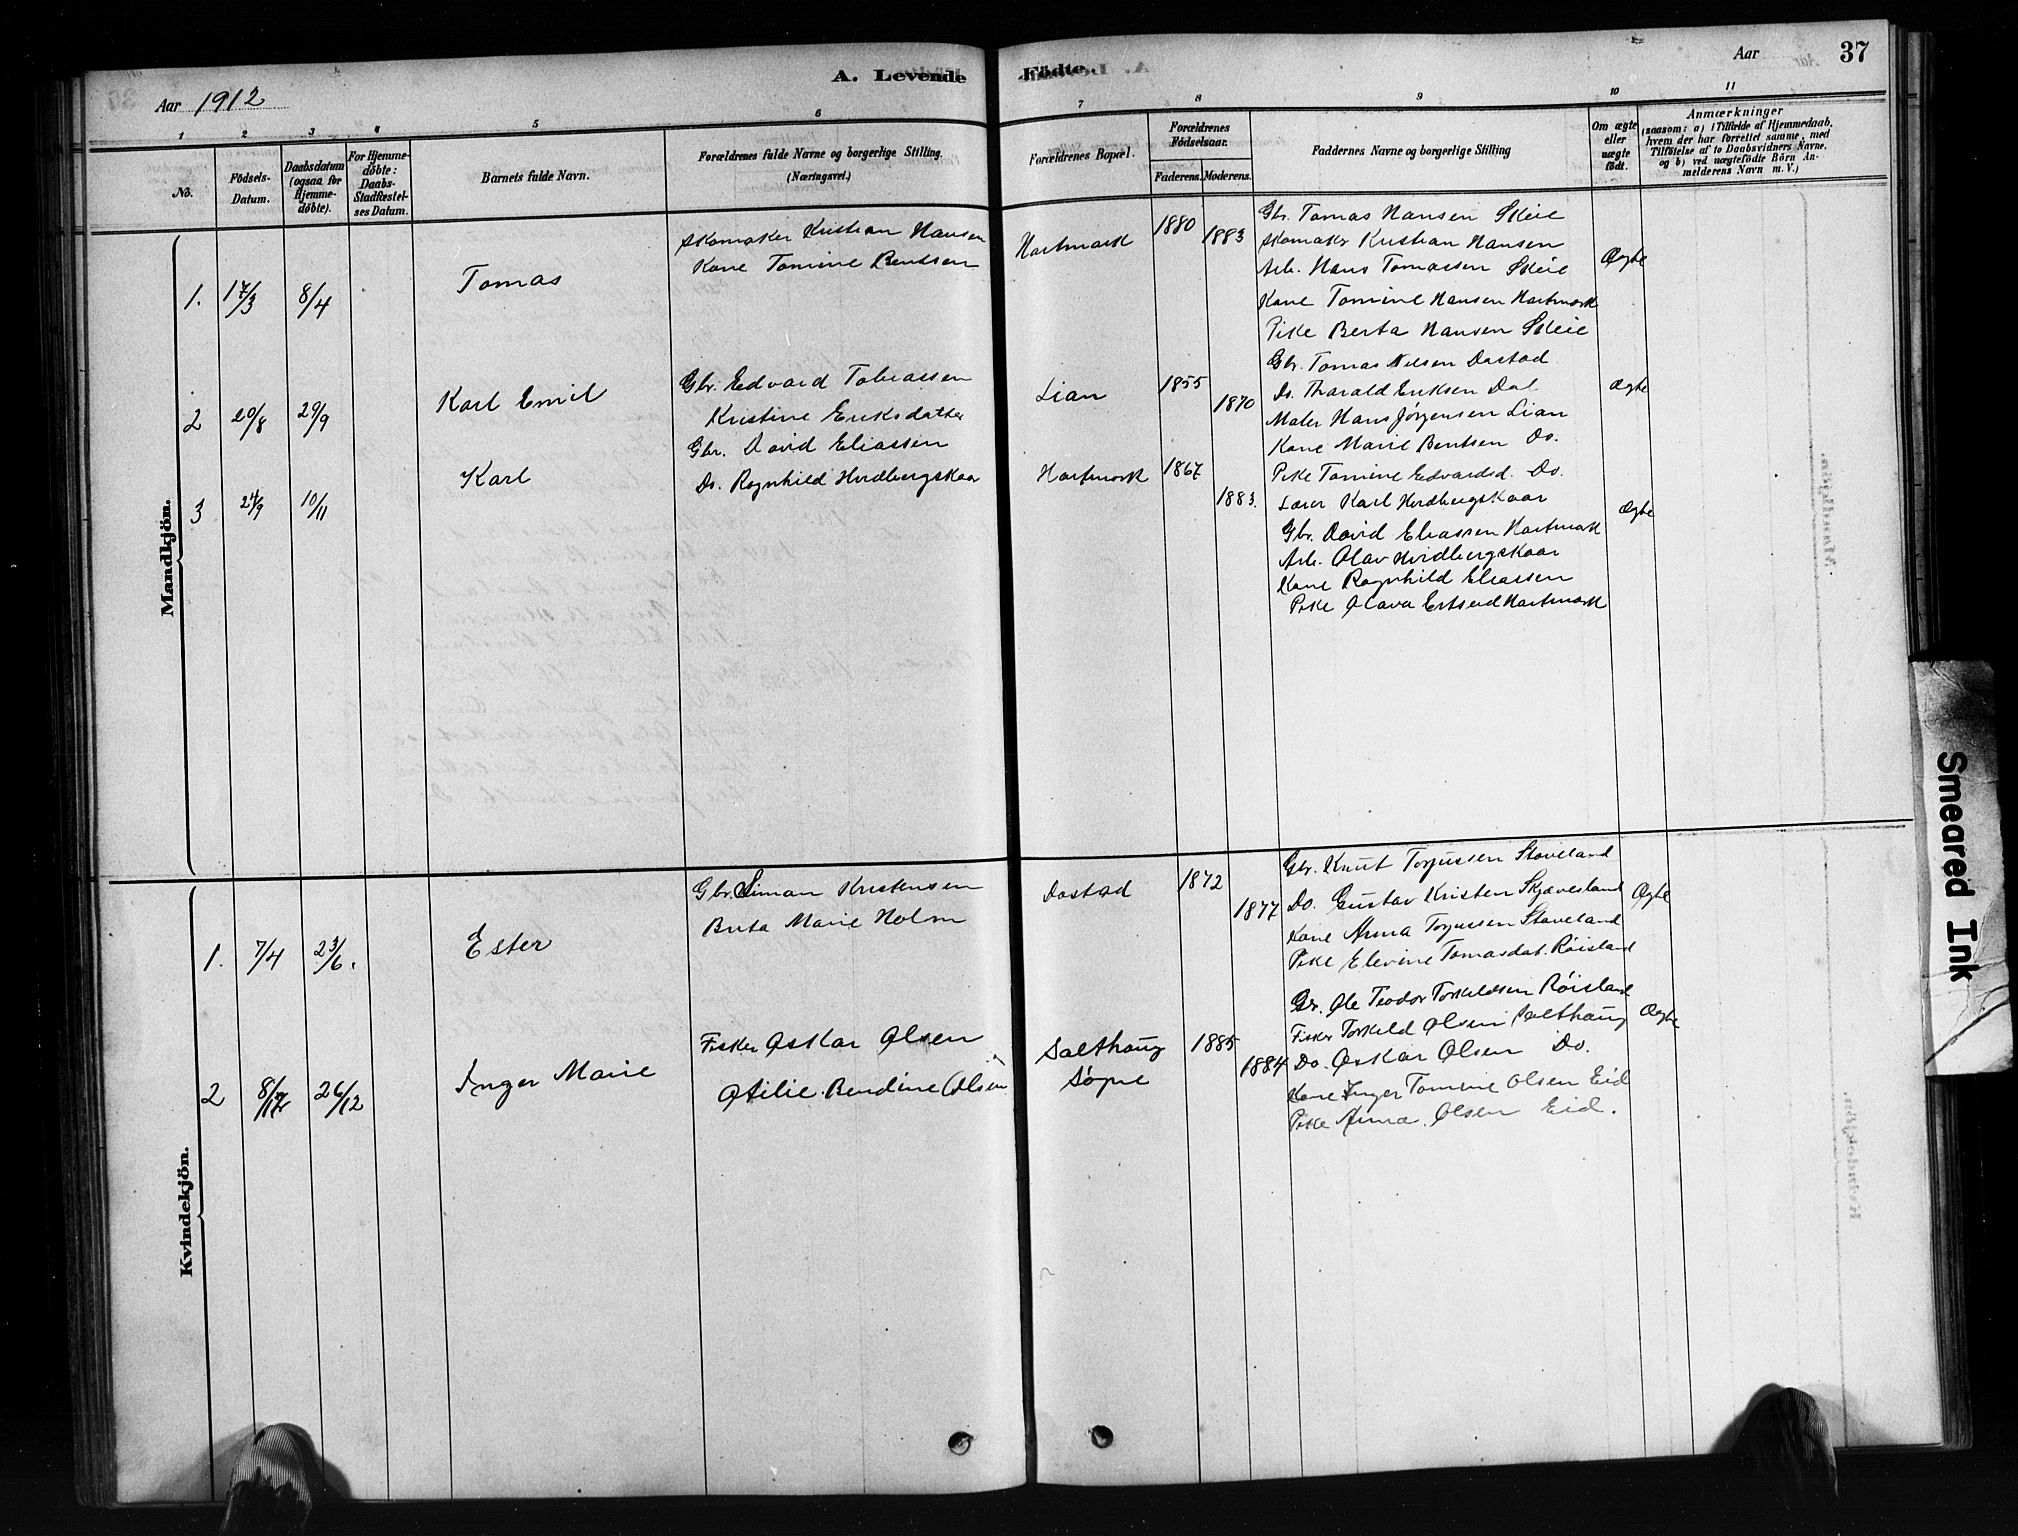 A. Levende Fødte.
Aar 37
Aar 1912
1 2 3 4 5 6 7 8 9 10 11
No.
Födsels-Datum.
Daabsdatum (ogsaa for Hjemmedøbte).
For Hjemmedøbte: Daabs-Stadfæstelses Datum.
Barnets fulde Navn.
Forældrenes fulde Navne og borgerlige Stilling. (Næringsvei.)
Forældrenes Bopæl.
Forældrenes Födselsaar.
Faderens. Moderens.
Faddernes Navne og borgerlige Stilling
Om ægte eller uægte födt.
Anmærkninger
(saasom: a) i Tilfælde af Hjemmedaab, hvem der har forrettet samme, med Tilföielse af to Daabsvidners Navne, og b) ved uægtefödte Börn Anmelderens Navn m. V.)
Mandkjön.
1. 17/3 8/4 Tomas
Skomaker Kristian Hansen
Kone Tomine Bentsen
Hartmark 1880 1883
Gbr. Tomas Hansen Skeie
Skomaker Kristian Hansen
Arb. Hans Tomassen Skeie
Kone Tomine Hansen Hartmark
Pike Berta Hansen Skeie
Ægte
2 20/8 29/9 Karl Emil
Gbr. Edvard Tobiassen
Kristine Eriksdatter
Lian 1855 1870
Gbr. Tomas Nilsen Dastad
Do. Tharald Eriksen Dal
Maler Hans Jørgensen Lian
Kone Marie Bentsen Do.
Pike Tomine Edvardsd. Do.
Ægte
3 24/9 10/11 Karl
Gbr. David Eliassen
Do. Ragnhild Hvidbergskaar
Hartmark 1867 1883.
Lærer Karl Hvidbergskaar
Gbr. David Eliassen Hartmark
Arb. Olav Hvidbergskaar
Kone Ragnhild Eliassen
Pike Olava Ertseid Hartmark
Ægte
Kvindekjön.
1. 7/4 23/6. Ester
Gbr. Simon Kristensen
Berta Marie Holm
Dastad 1872 1877
Gbr. Knut Torjussen Staveland
Do. Gustav Kristen Skjævesland
Kone Anna Torjussen Staveland
Pike Elevine Tomasdat. Røisland
Ægte
2 26/12 Inger Marie
Fisker Oskar Olsen
Otilie Bendine Olsen
Salthaug
Søgne
1885 1884
Gbr. Ole Teodor Torkeldsen Røisland
Fisker Torkeld Olsen Salthaug
Do. Oskar Olsen Do.
Kone Inger Tomine Olsen Eid
Pike Anna Olsen Eid.
Ægte
Smeared Ink